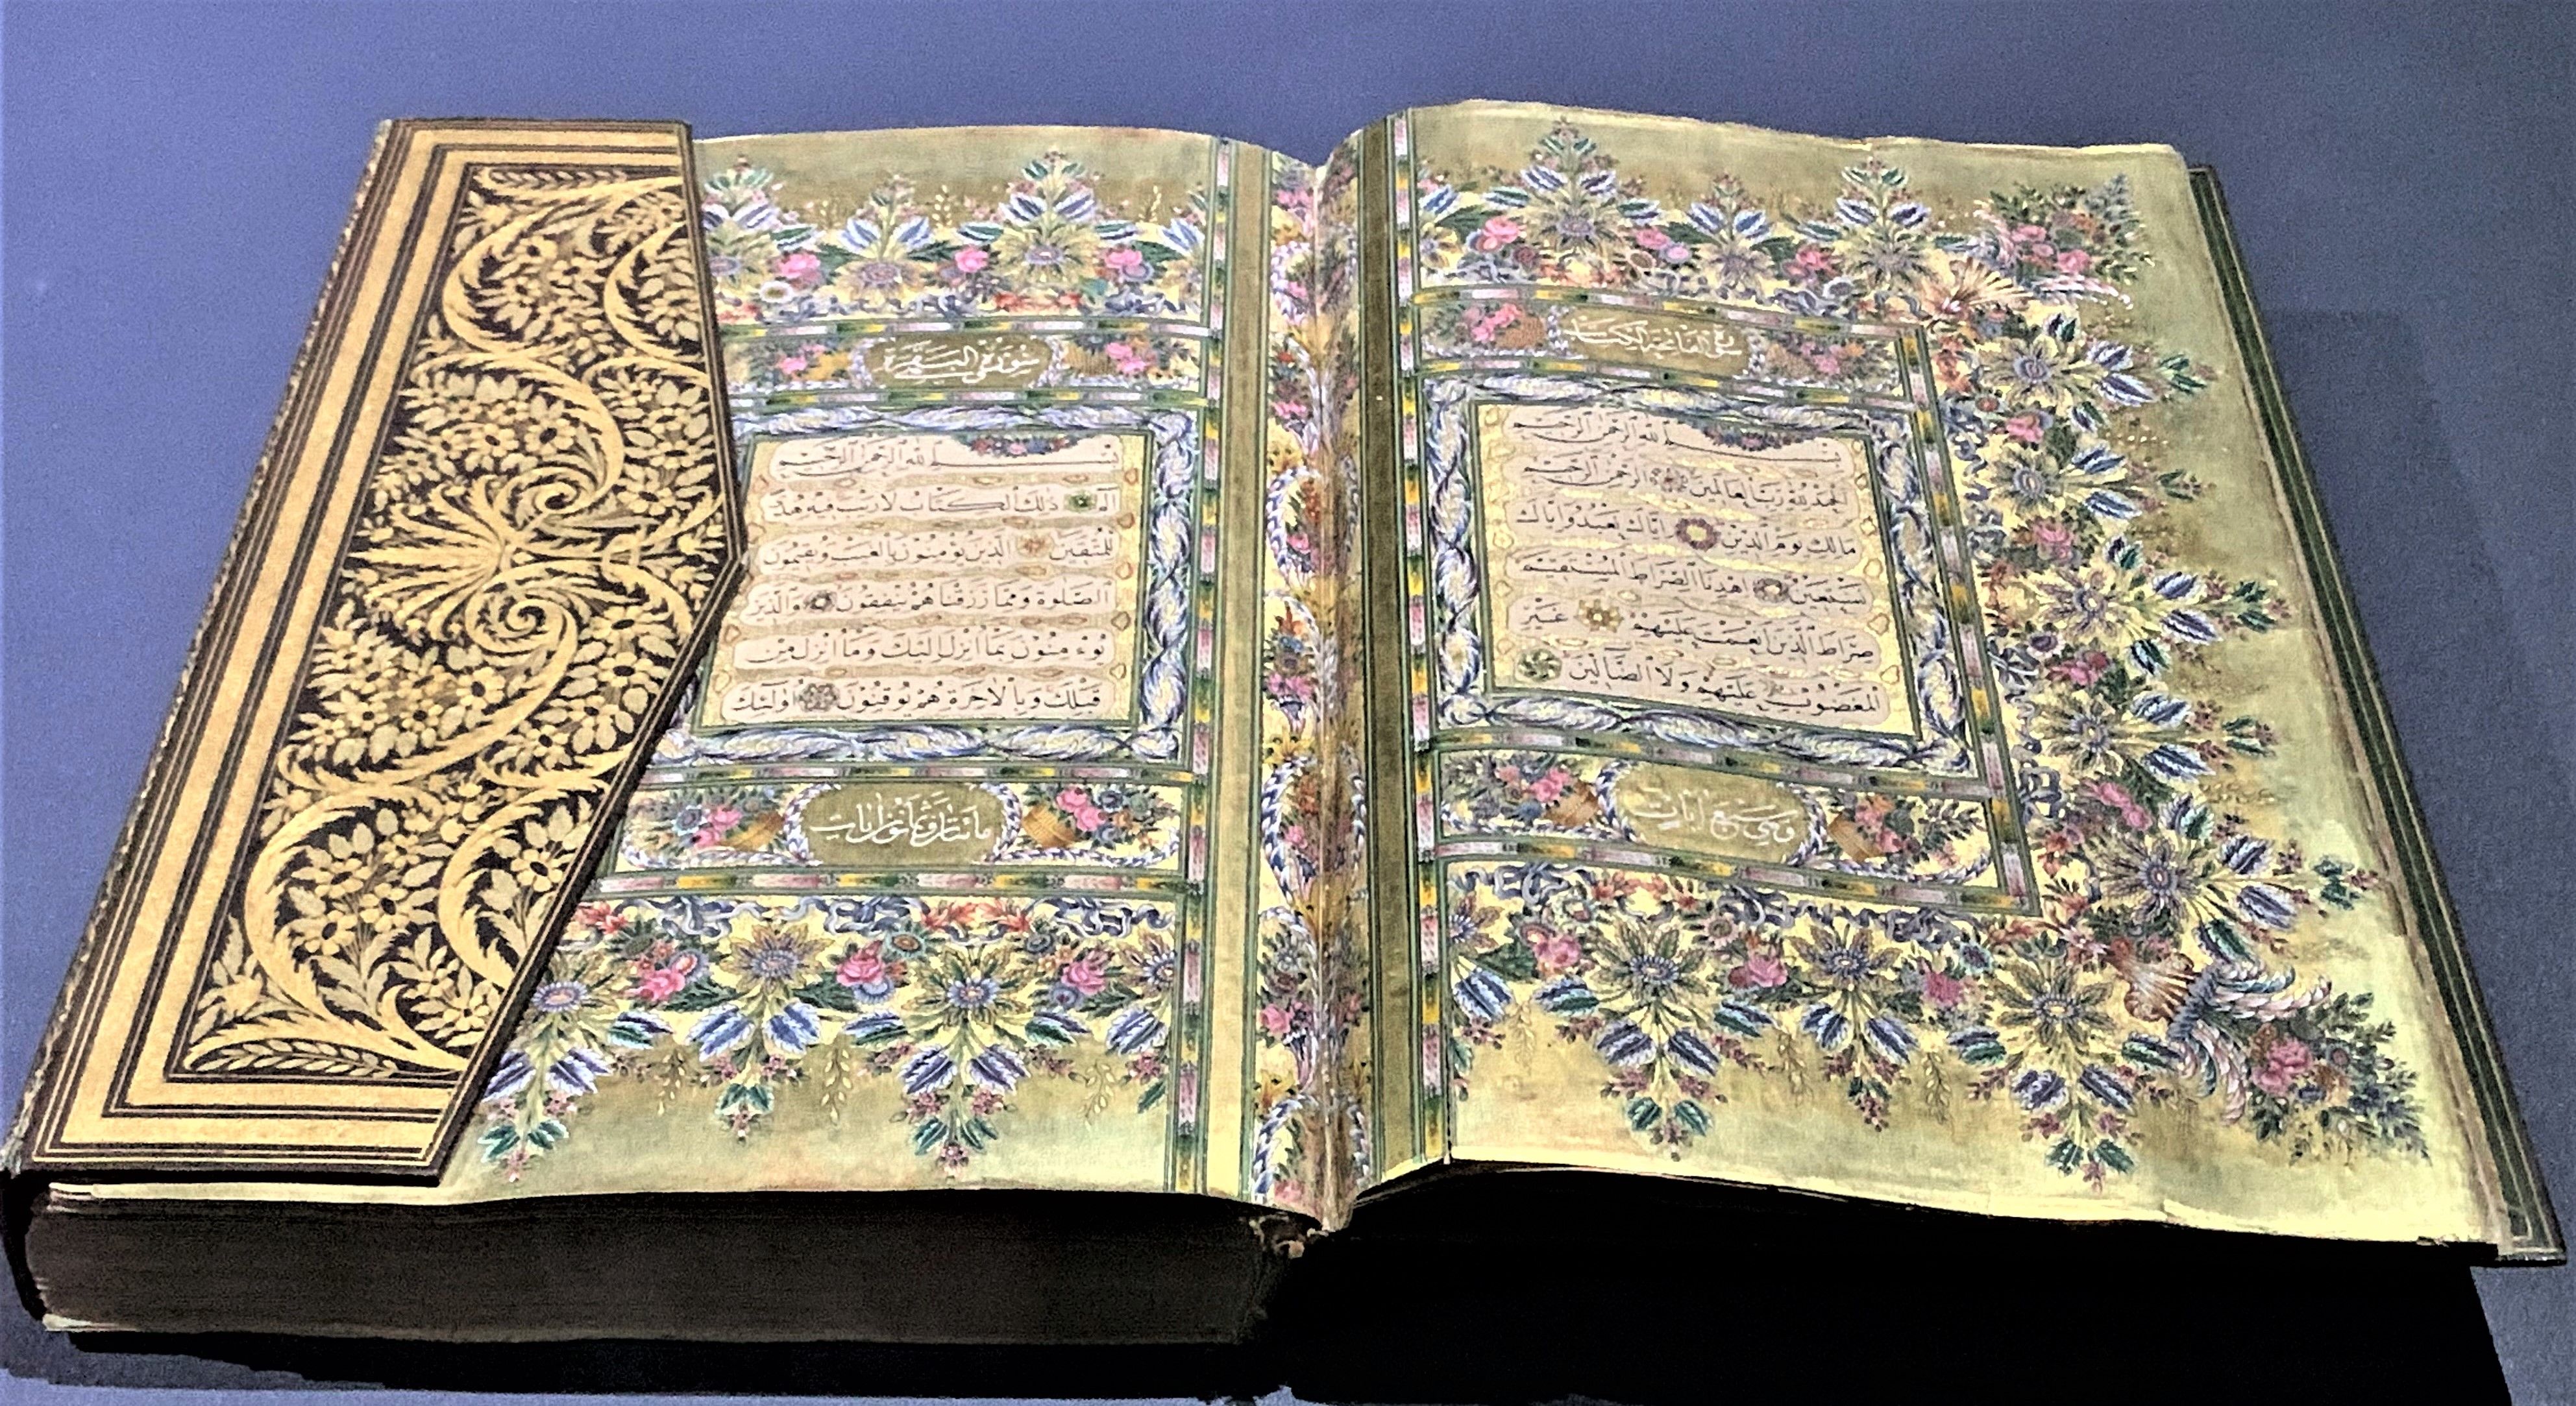 سورة الفاتحة الكتاب
بسم الله الرحمن الرحيم
الحمد لله رب العالمين الرحمن الرحيم
مالك يوم الدين اياك نعبد واياك
نستعين اهدنا الصراط المستقيم
صراط الذين انعمت عليهم غير
المغضوب عليهم ولا الضالين
وهي سبع ايات
سورة البقرة
بسم الله الرحمن الرحيم
الم ذلك الكتاب لا ريب فيه هد
للمتقين الذين يؤمنون بالغيب ويقيمون
الصلوة ومما رزقناهم ينفقون والذين
يؤمنون بما انزل اليك وما انزل من
قبلك وبالاخرة هم يوقنون اولئك
مائتان وثمانون ايات